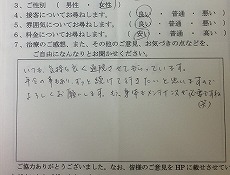 3、ご性別 （ 男性 ・ 女性 ）
4、接客についてお尋ねします。 良い ・ 普通 ・ 悪い
5、雰囲気についてお尋ねします。 良い ・ 普通 ・ 悪い
6、料金についてお尋ねします。 安い ・ 普通 ・ 高い
7、治療のご感想、また、その他のご意見、お気づきの点などを、
ご自由になんなりとお聞かせください。
いつも、気持ち良く通院させてもらっています。
年令の事もあり、ずっと続けて行きたいと思いますので
よろしくお願いします。
ご協力ありがとうございました。なお、皆様のご意見をHPに載せさせてい